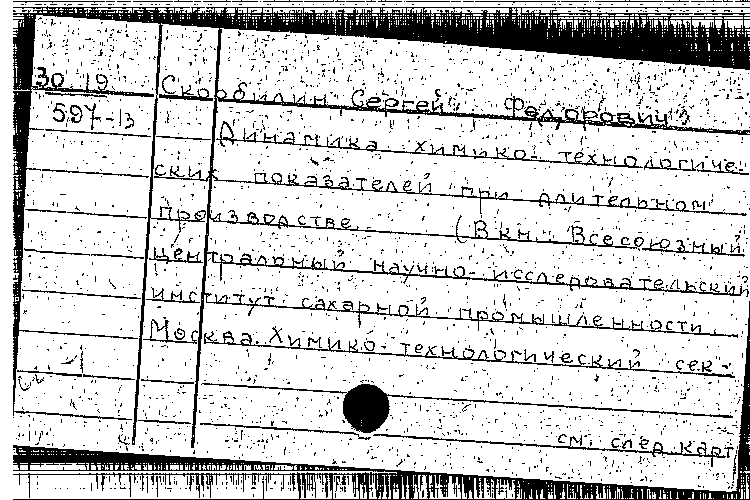 30 19
597-13
Скорбилин, Сергей Федорович
Динамика химико-технологиче-
ских показателей при длительном
производстве. (В кн.: Всесоюзный
центральный научно-исследовательский
институт сахарной промышленности.
Москва. Химико-технологический сек-
см. след. карт